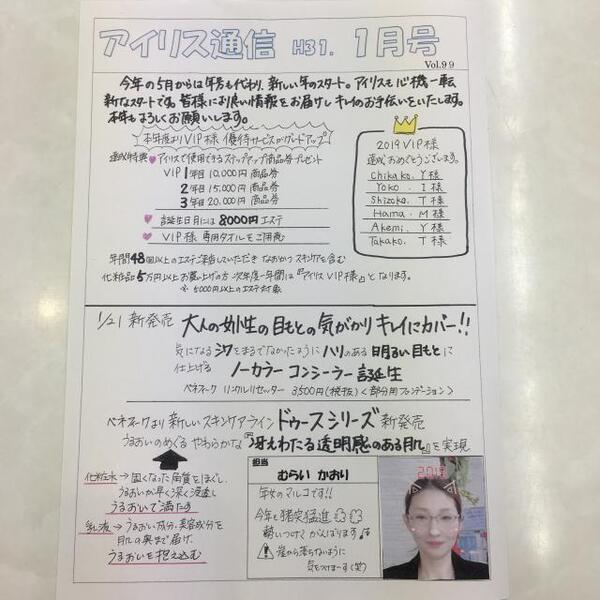 アイリス通信 H31. 1月号
Vol.99
今年の5月からは年号も代わり、新しい年のスタート。アイリスも心機一転
新たなスタートです。皆様にお良い情報をお届けし キレイのお手伝いをいたします。
本年もよろしくお願いします。
本年度よりVIP様 優待サービスがグレードアップ
達成特典 アイリスで使用できるステップアップ商品券プレゼント
VIP 1年目 10,000円 商品券
2年目 15,000円 商品券
3年目 20,000円 商品券
誕生日月には 8000円 エステ
VIP様 専用タオルをご用意
年間48回以上のエステご来店していただき なおかつ スキンケアを含む
化粧品5万円以上お買い上げの方 次年度一年間は『アイリス VIP様』となります。
※ 5000円以上のエステ対象
2019 VIP様
達成おめでとうございます。
Chikako. Y様
Yoko. I様
Shizoko. T様
Hama. M様
Akemi. Y様
Takako. T様
1/21 新発売 大人の女性の目もとの気がかり キレイにカバー!!
気になるシワをまるでなかったように ハリのある 明るい目もとに
仕上げる ノーカラー コンシーラー 誕生
ベネフィーク リンクルリセッター 3,500円(税抜) <部分用ファンデーション>
ベネフィークより 新しいスキンケアライン ドゥースシリーズ 新発売
うるおいのめぐる やわらかな『冴えわたる透明感のある肌』を実現
化粧水→固くなった角質をほぐし、
うるおいが早く深く浸透し
うるおいで満たす
乳液→うるおい成分、美容成分を
肌の奥まで届け、
うるおいを抱え込む
担当
むらい かおり
年女のマルコです!!
今年も猪突猛進
勢いつけて がんばります
崖から落ちないように
気をつけまーす(笑)
2019